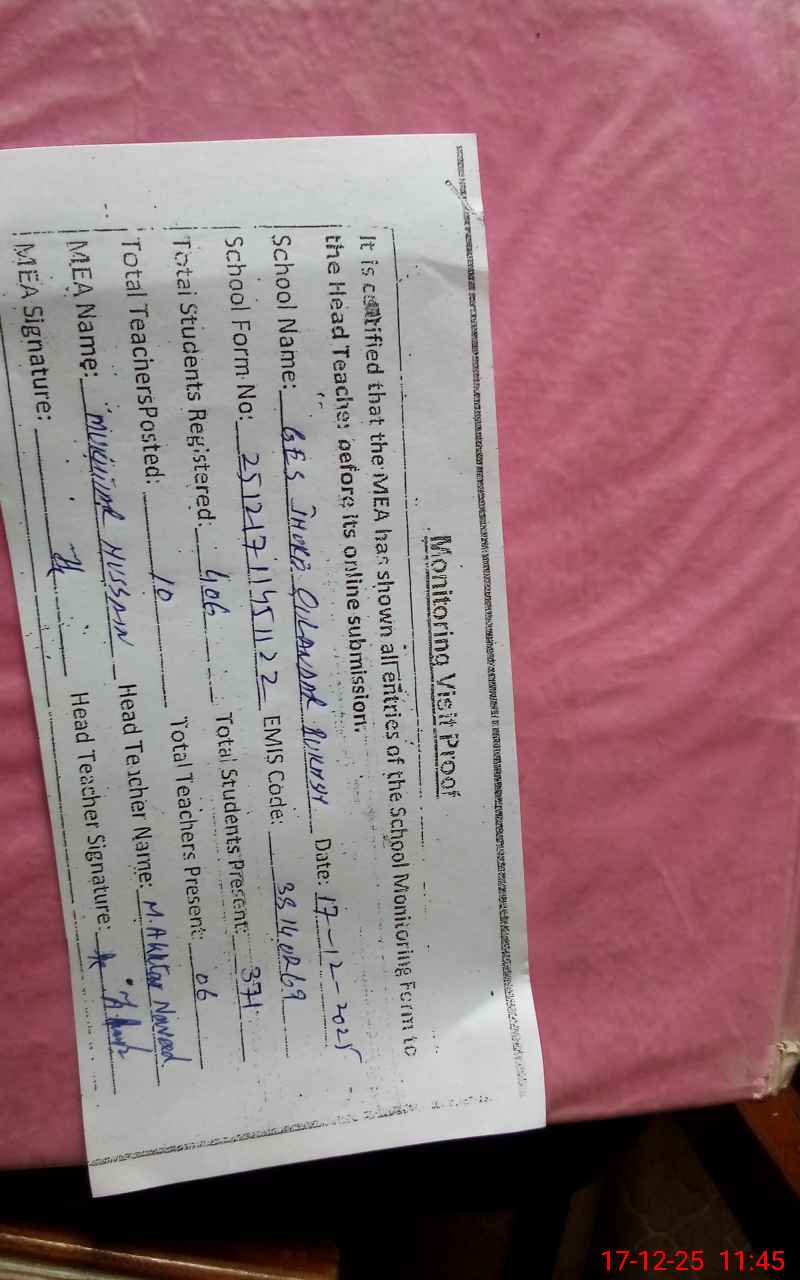 Monitoring Visit Proof
It is certified that the MEA has shown all entries of the School Monitoring Form to
the Head Teacher before its online submission.
School Name: GES JHOKE QILANDAR BUKHSH Date: 17-12-2025
School Form No: 25121711451122 EMIS Code:
Total Students Registered: 406 Total Students Present: 371
Total Teachers Posted: 10 Total Teachers Present: 06
MEA Name: MUKHTAR HUSSAIN Head Teacher Name: M. Akhtar Naveed
MEA Signature: Head Teacher Signature:
17-12-25 11:45